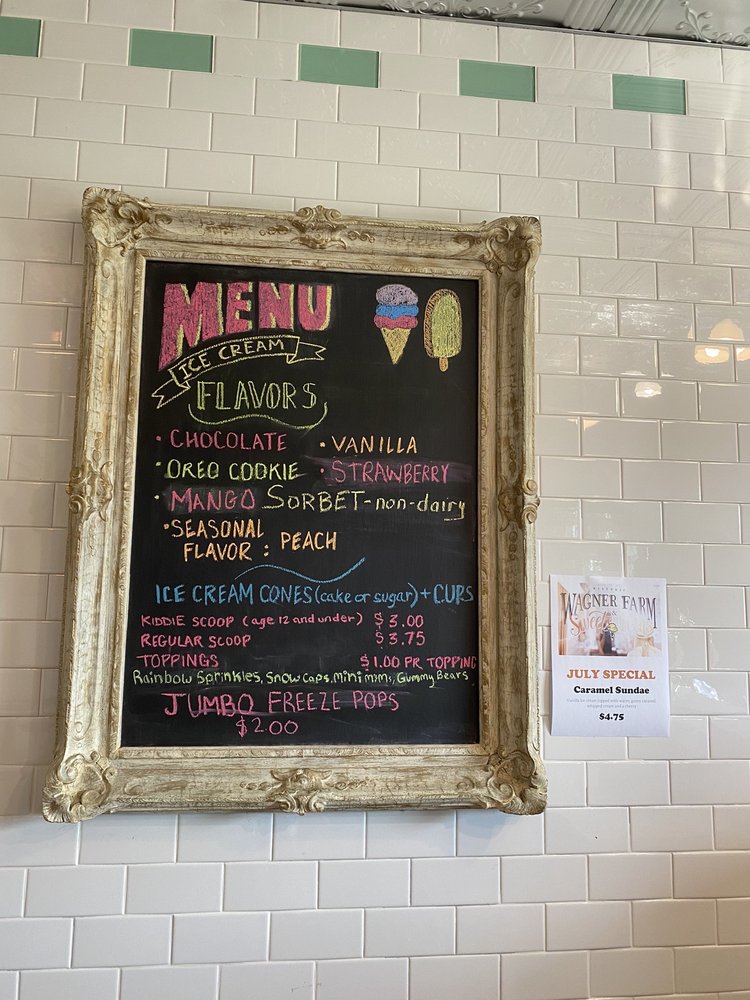 MENU
ICE CREAM
FLAVORS
• CHOCOLATE • VANILLA
• OREO COOKIE • STRAWBERRY
• MANGO SORBET-non-dairy
• SEASONAL
FLAVOR : PEACH
ICE CREAM CONES (cake or sugar) + CUPS
KIDDIE SCOOP (age 12 and under) $3.00
REGULAR SCOOP $3.75
TOPPINGS $1.00 PR TOPPING
Rainbow Sprinkles, Snow caps, mini m&ms, Gummy Bears
JUMBO FREEZE POPS
$2.00
WAGNER FARM
Sweet
JULY SPECIAL
Caramel Sundae
Vanilla ice cream topped with warm gooey caramel,
whipped cream and a cherry
$4.75